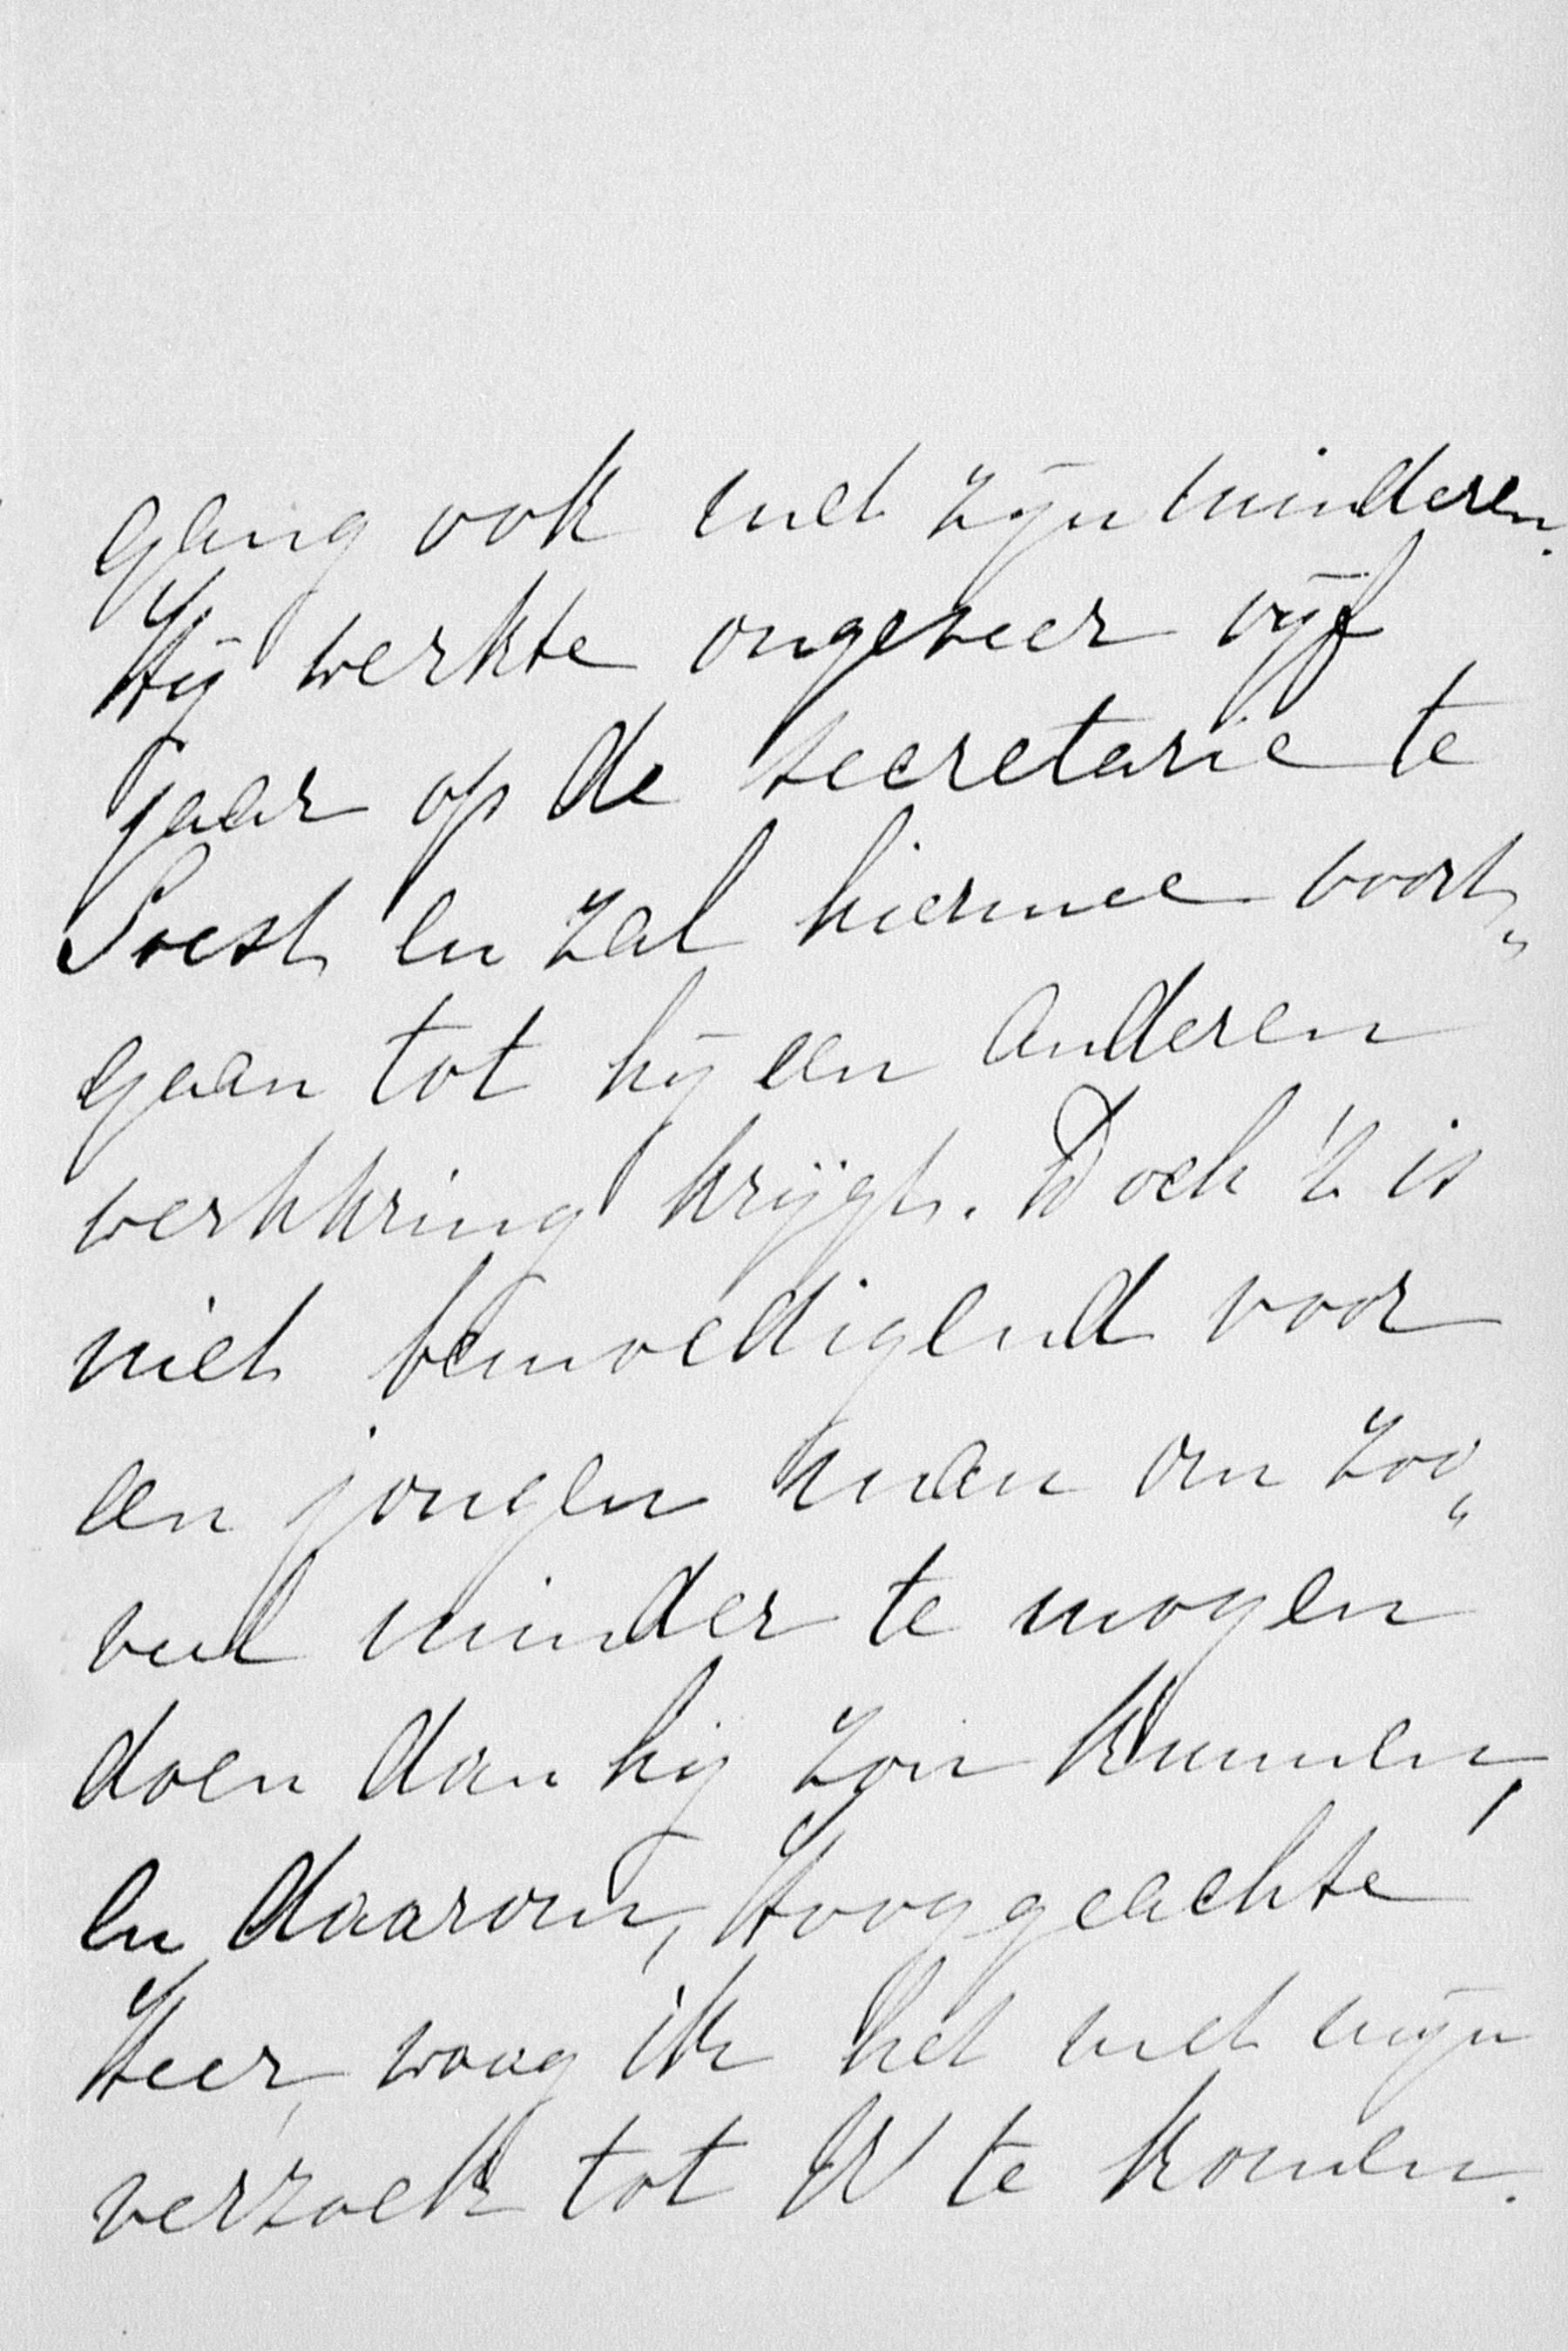 gang ook met zijn minderen.
Hij werkte ongeveer vijf
jaar op de secretarie te
Soest en zal hiermee voort„
gaan tot hij een anderen
werkkring krijgt. Doch 't is
niet bemoedigend voor
een jongen man om zoo„
veel minder te mogen
doen dan hij zou kunnen,
en daarom, Hooggeachte
Heer, waag ik het met mijn
verzoek tot U te komen.